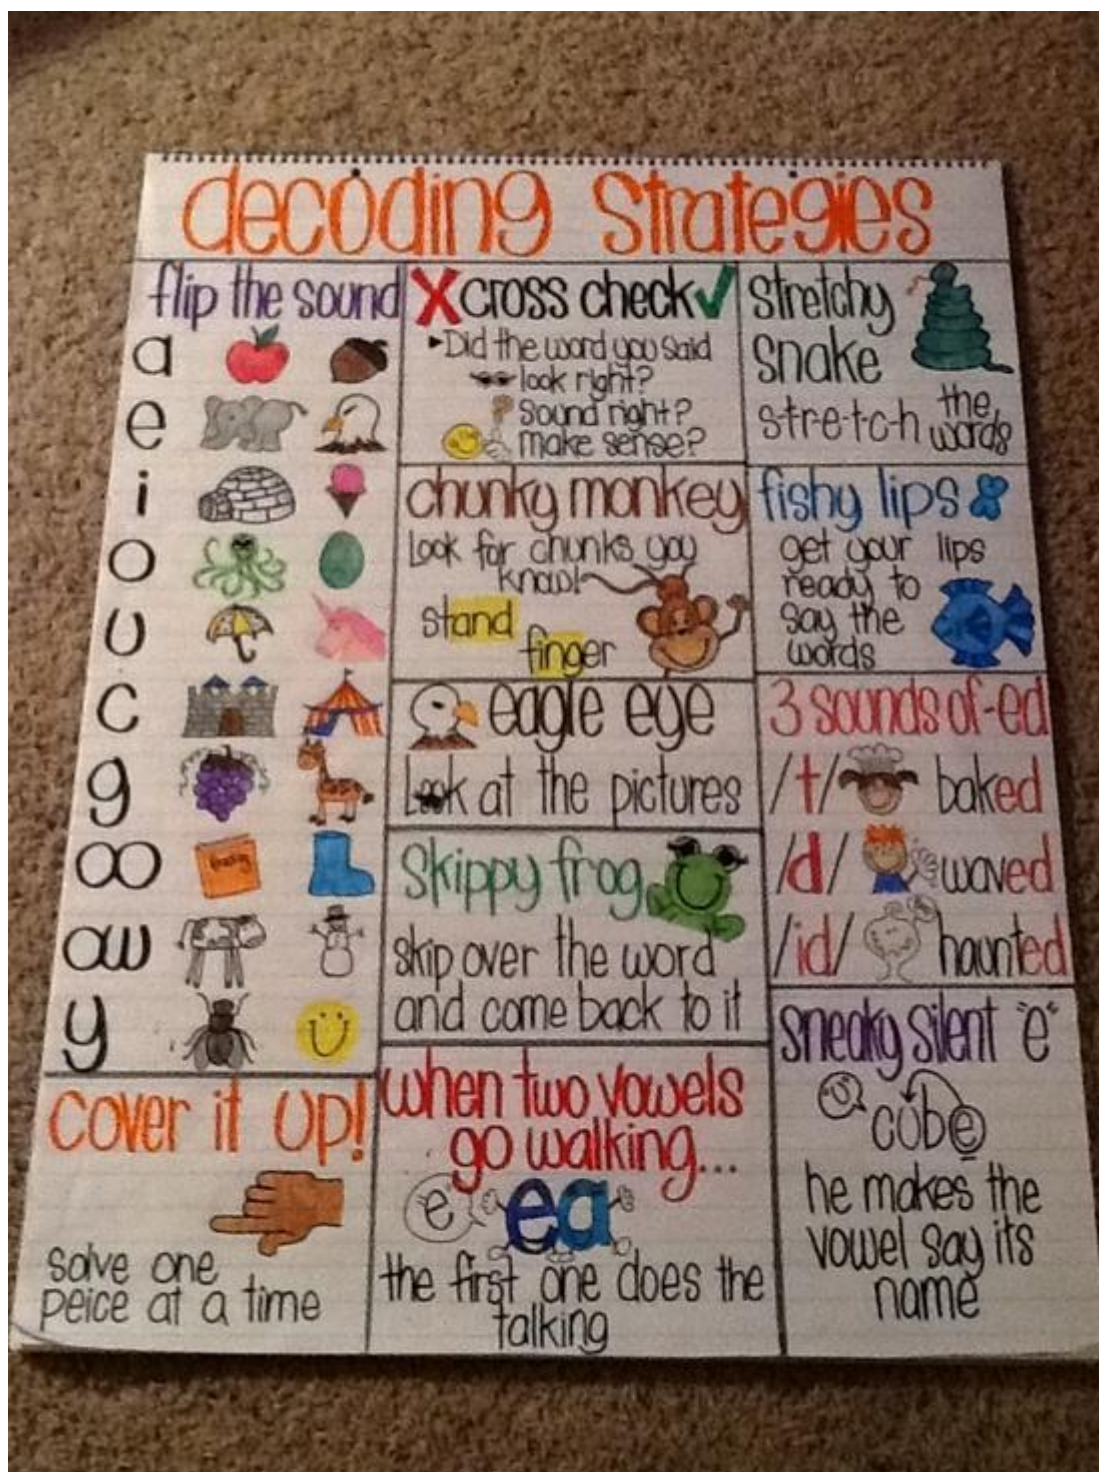 decoding strategies
flip the sound
a
e
i
o
u
c
g
oo
ow
y
cover it up!
solve one
peice at a time
X cross check ✓
▸Did the word you said
look right?
sound right?
make sense?
chunky monkey
Look for chunks you
know!
stand
finger
eagle eye
Look at the pictures
skippy frog
skip over the word
and come back to it
when two vowels
go walking...
e
ea
the first one does the
talking
stretchy
snake
s-t-r-e-t-c-h the
words
fishy lips
get your lips
ready to
say the
words
3 sounds of -ed
/t/ baked
/d/ waved
/id/ haunted
sneaky silent "e"
cube
he makes the
vowel say its
name